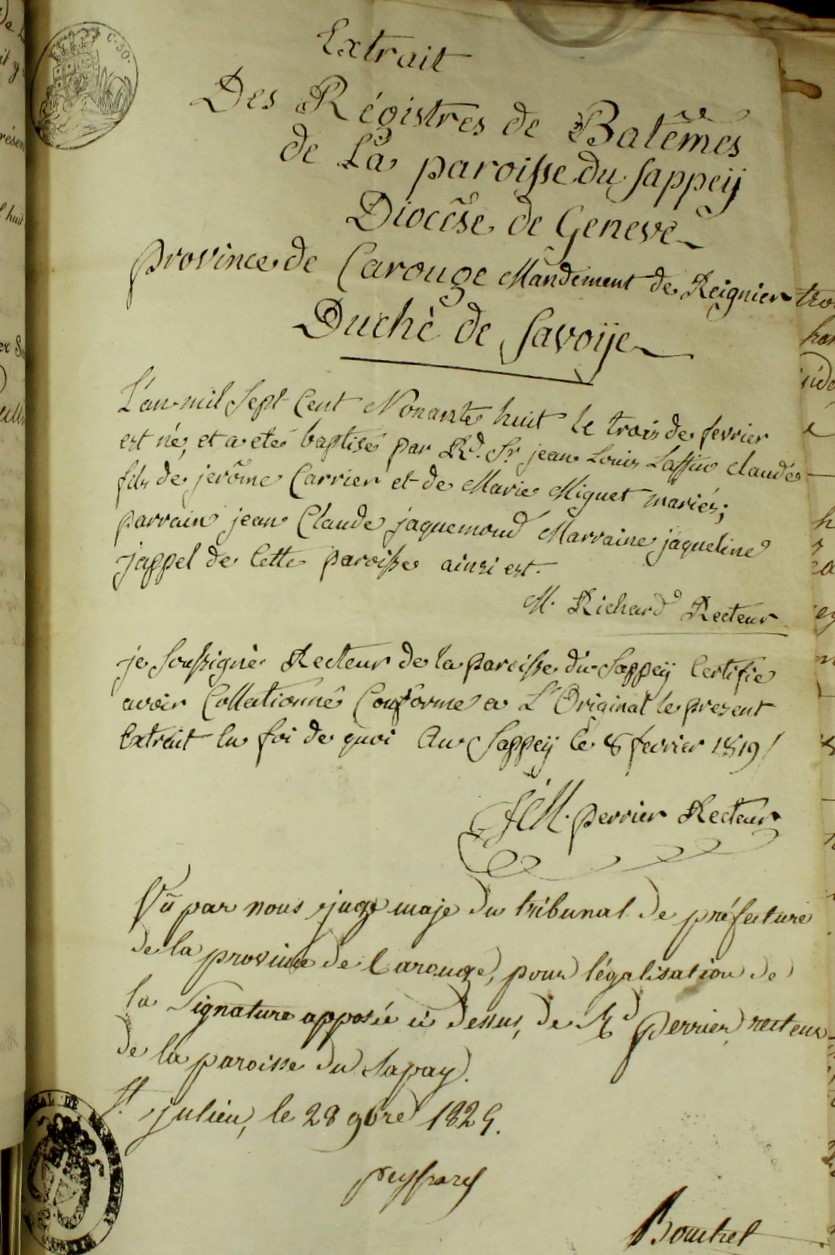 C. 50.
Extrait
Des Régistres de Batêmes
de La paroisse du Sappeÿ
Diocêse de Geneve
province de Carouge Mandement de Reignier
Duchè de Savoÿe
L'an mil Sept Cent Nonante huit le trois de fevrier
est né, et a eté baptisé par Rd. Sr. jean Louis claude
fils de jerôme Carrier et de Marie Miguet mariés;
parrain jean Claude jaquemoud Marraine jaqueline
jappel de Cette paroisse ainsi est.
M. Richard Recteur
je Soussigné Recteur de la paroisse du Sappeÿ Certifie
avoir Collationné Conforme a L'Original le present
Extrait En foi de quoi Au Sappeÿ le 8 fevrier 1819
perrier Recteur
Vû par nous juge maje du tribunal de préfecture
de la province de Carouge, pour légalisation de
la Signature apposée ci dessus, de Rd perrier recteur
de la paroisse du Sapay.
St. julien, le 28 9bre 1829.